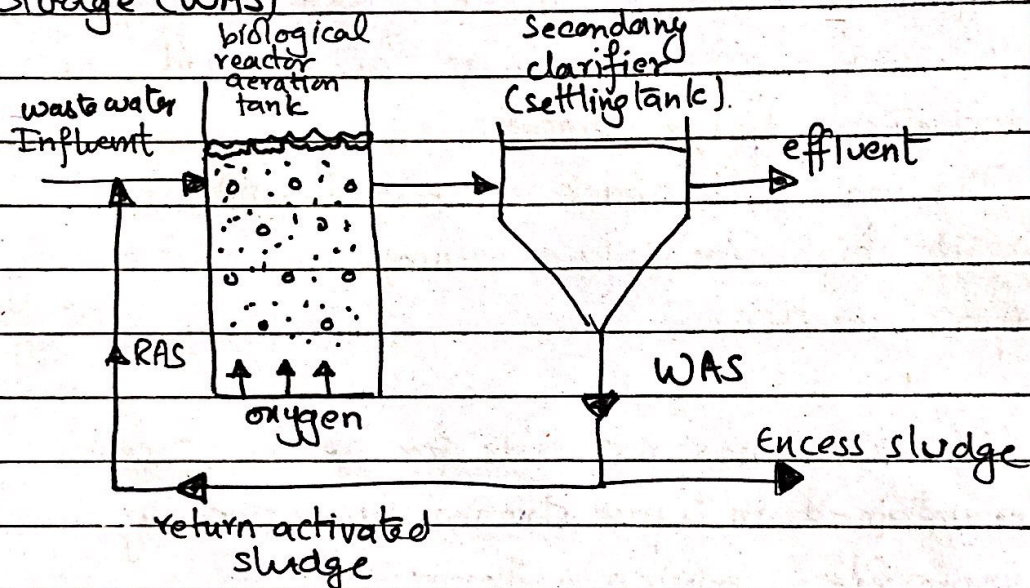 Sludge (WAS)
biological
reactor
aeration
tank
Secondary
clarifier
(settling tank).
waste water
Influemt
effluent
RAS
oxygen
WAS
Encess sludge
return activated
sludge